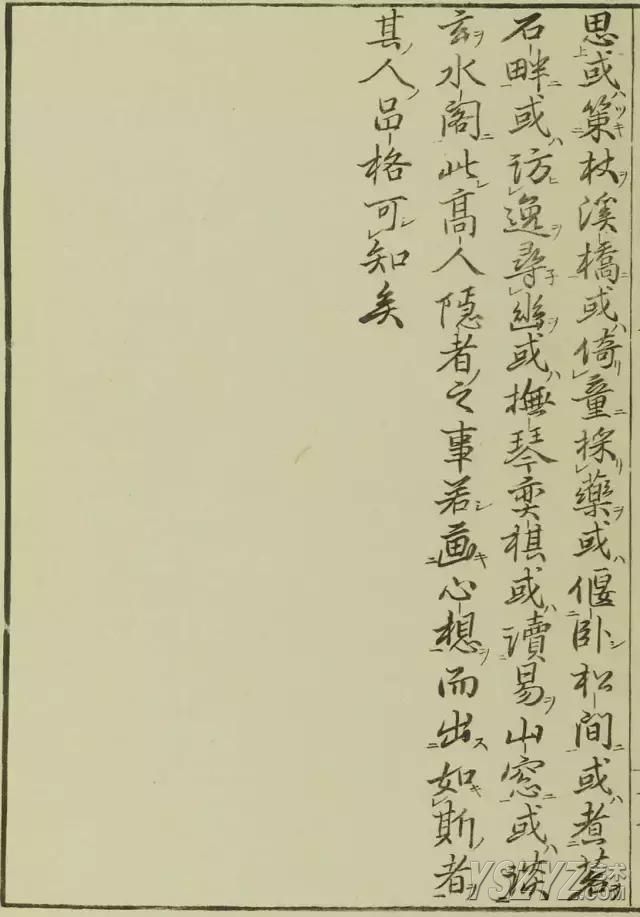 思或策杖溪橋或倚童採藥或偃卧松間或煮茗
石畔或訪逸尋幽或撫琴奕棋或讀易山窓或談
玄水閣此高人隱者之事若画心想而出如斯者
其人品格可知矣
YSZYZ艺术
.COM